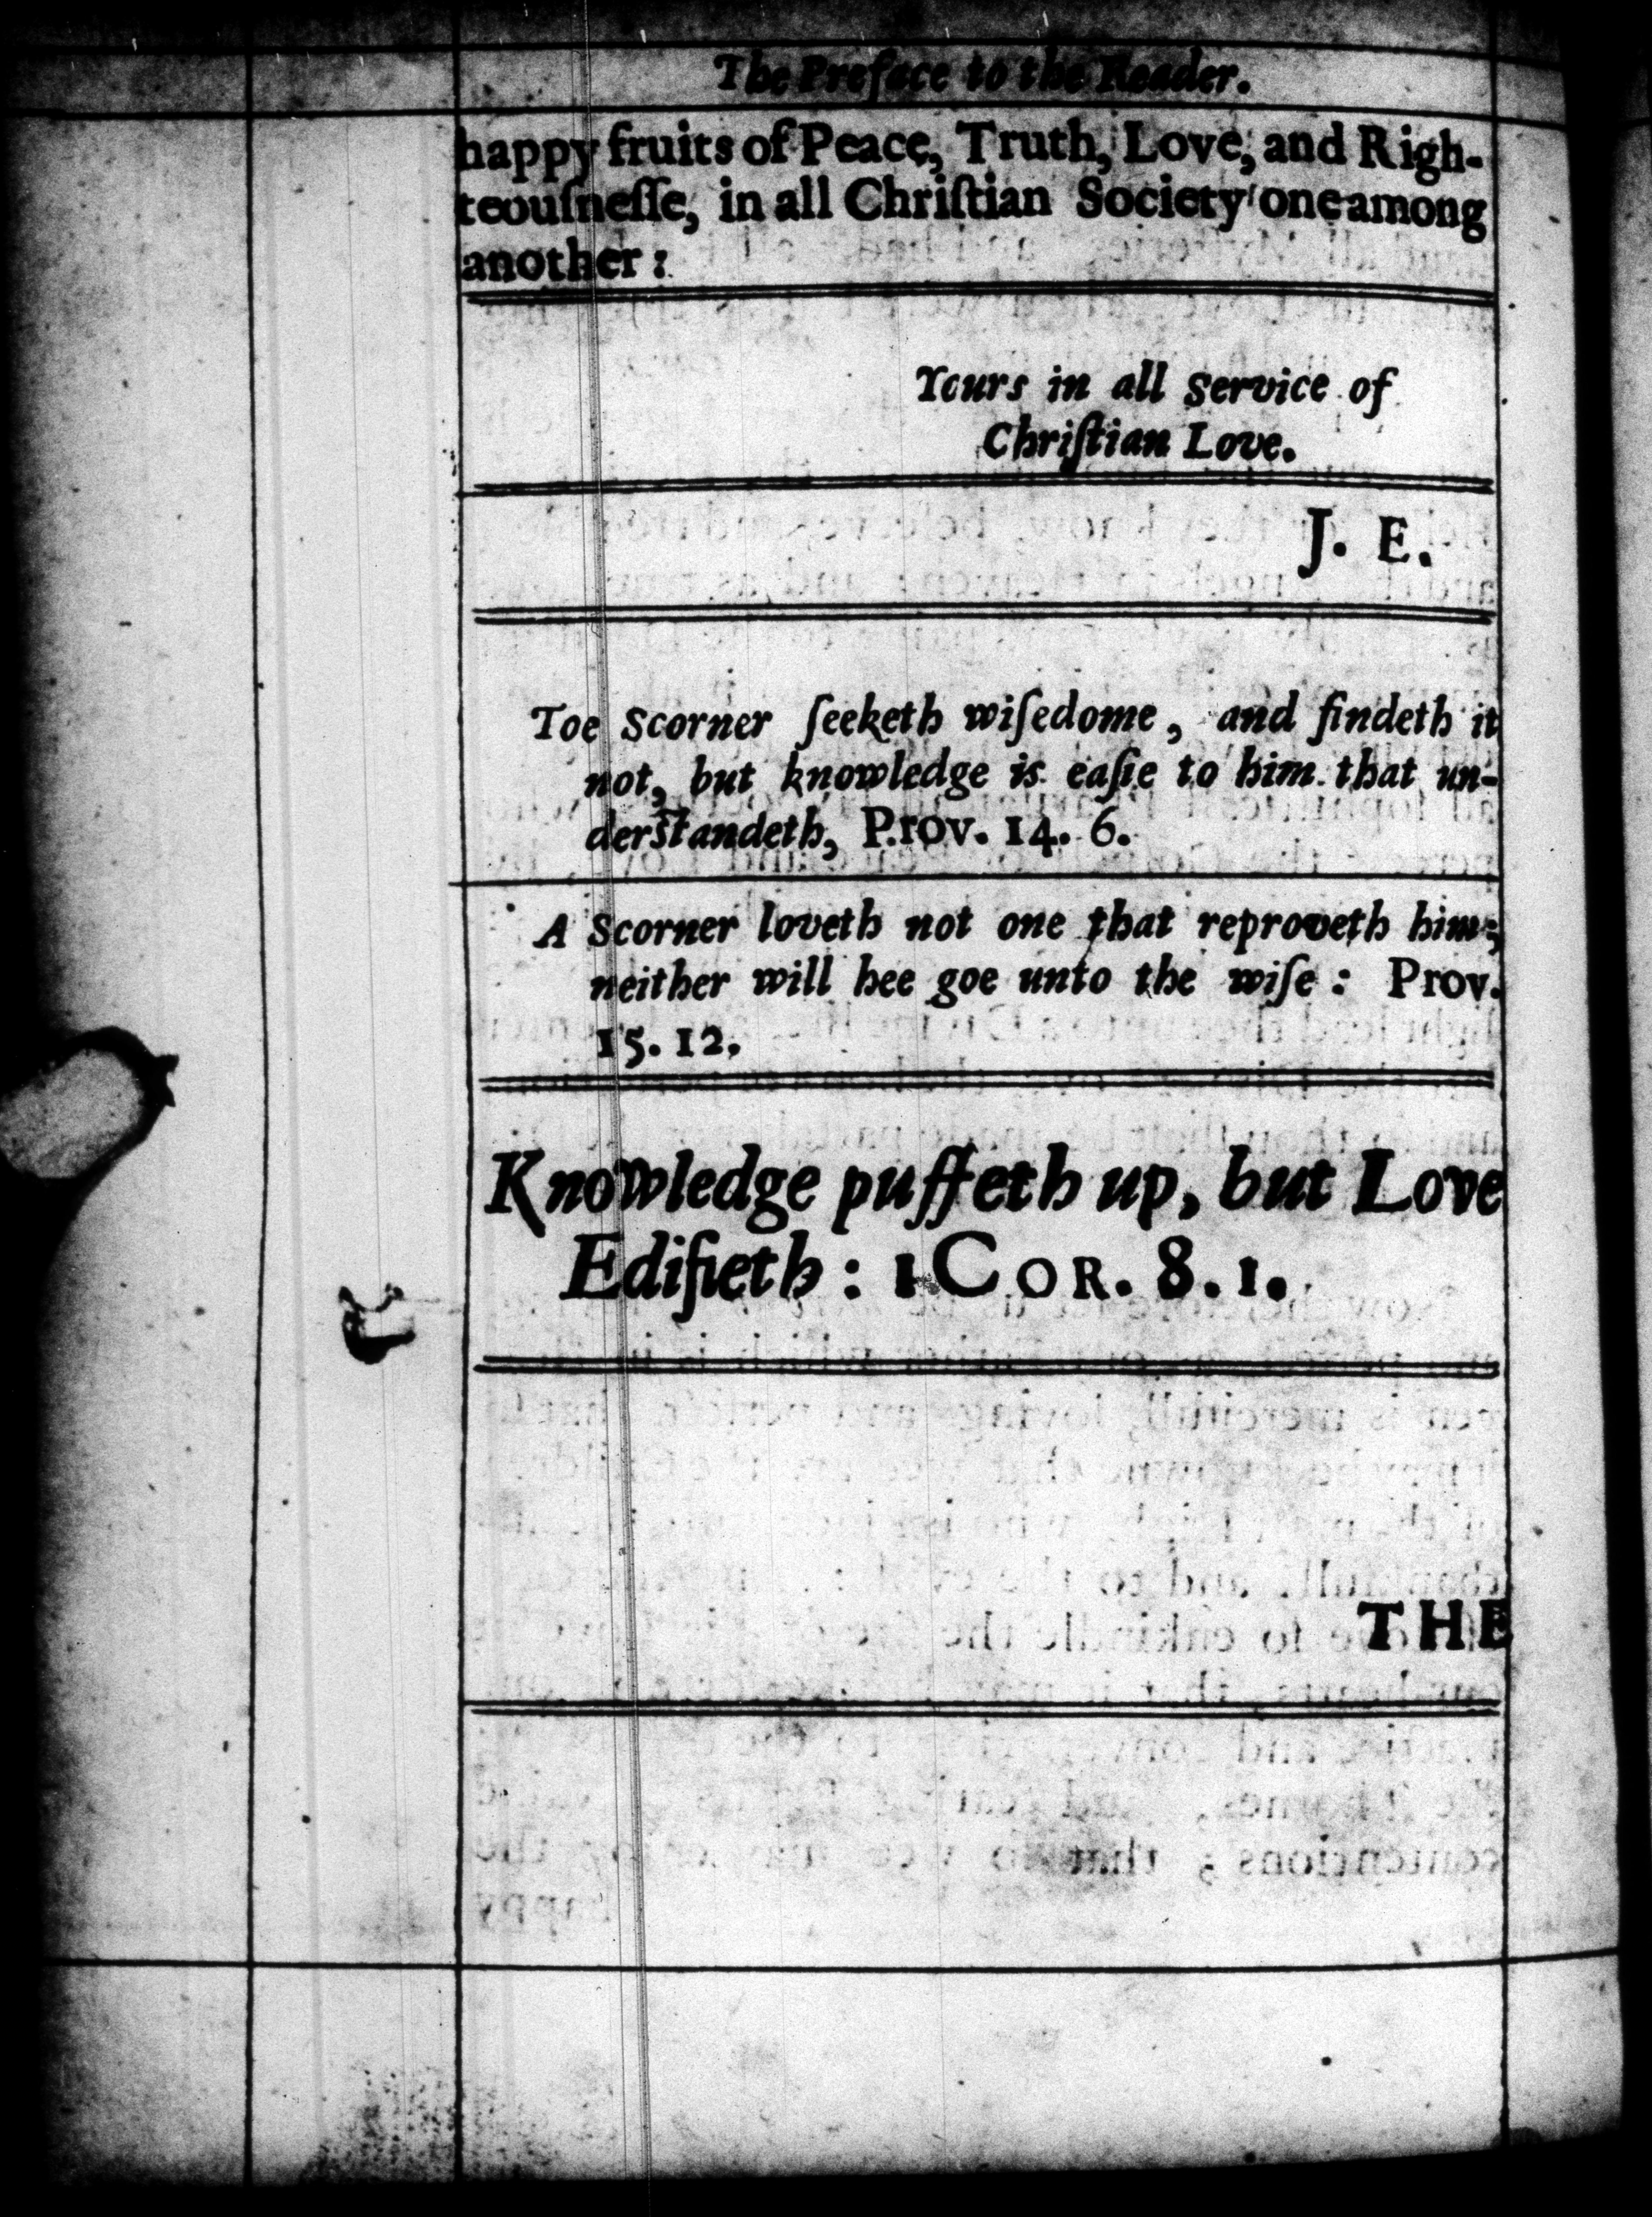 The Preface to the Reader.
happy fruits of Peace, Truth, Love, and Righ-
teouſneſſe, in all Chriſtian Society one among
another:
Yours in all service of
Chriſtian Love.
J. E.
Toe Scorner ſeeketh wiſedome, and findeth it
not, but knowledge is eaſie to him that un-
derſtandeth, Prov. 14. 6.
A Scorner loveth not one that reproveth him;
neither will hee goe unto the wiſe: Prov.
15. 12.
Knowledge puffeth up, but Love
Edifieth: 1 COR. 8. 1.
THE